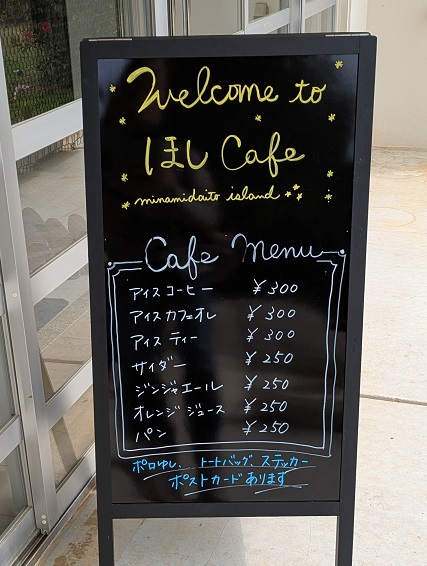 Welcome to
ほし Cafe
minamidaito island
Cafe Menu
アイスコーヒー ¥300
アイスカフェオレ ¥300
アイスティー ¥300
サイダー ¥250
ジンジャエール ¥250
オレンジジュース ¥250
パン ¥250
ポロゆし、トートバッグ、ステッカー
ポストカードあります